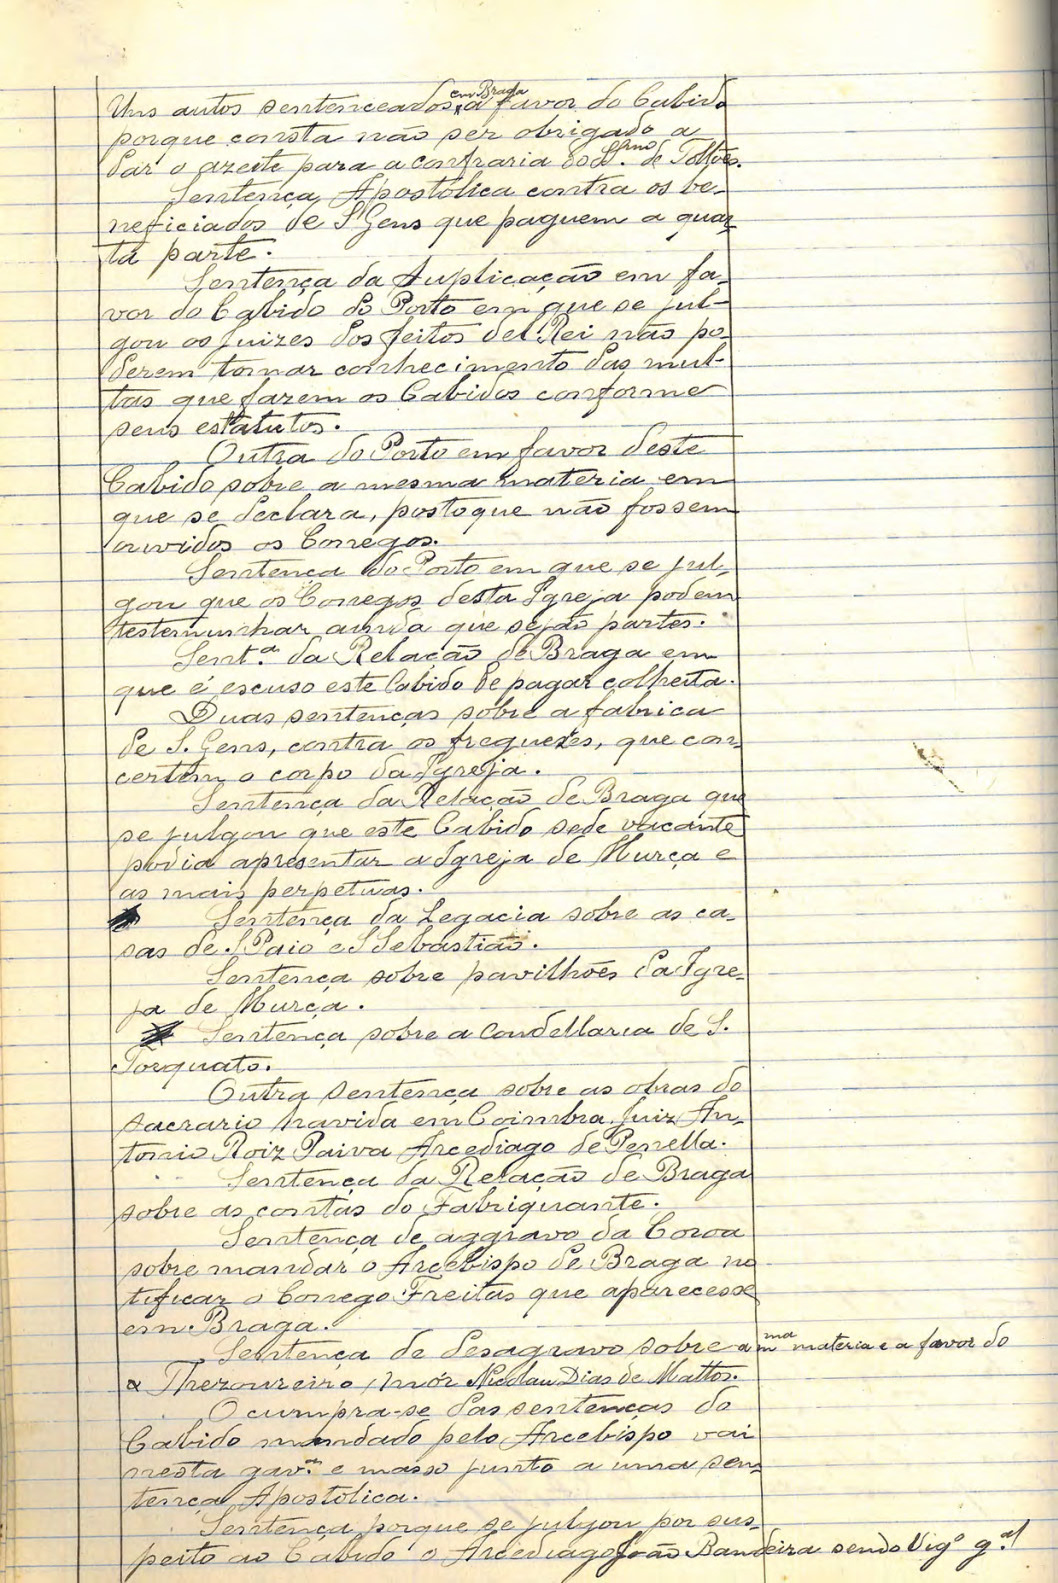 Uns autos sentenceados em Braga a favor do Cabido
porque consta não ser obrigado a
dar o azeite para a confraria do S.mo de Tolões.
Sentença Apostólica contra os be-
neficiados de S Gens que paguem a quar-
ta parte.
Sentença da Suplicação em fa-
vor do Cabido do Porto em que se jul-
gou os juizes dos feitos del Rei não po-
derem tomar conhecimento das mul-
tas que fazem os Cabidos conforme
seus estatutos.
Outra do Porto em favor deste
Cabido sobre a mesma materia em
que se declara, postoque não fossem
ouvidos os Conegos.
Sentença do Porto em que se jul-
gou que os Conegos desta Igreja podem
testemunhar ainda que sejão partes.
Sent.a da Relação de Braga em
que é escuso este Cabido de pagar colheita.
Duas sentenças sobre a fabrica
de S. Gens, contra os freguezes, que con-
certem o corpo da Igreja.
Sentença da Relação de Braga que
se julgou que este Cabido sede vacante
podia apresentar a Igreja de Murça e
as mais perpetuas.
Sentença da Legacia sobre as ca-
sas de S Paio e S Sebastião.
Sentença sobre pavilhões da Igre-
ja de Murça.
Sentença sobre a Condellaria de S.
Torquato.
Outra Sentença sobre as obras do
sacrario havida em Coimbra Juiz An-
tonio Roiz Paiva Arcediago de Penella.
Sentença da Relação de Braga
sobre as contas do Fabriquante.
Sentença de aggravo da Coroa
sobre mandar o Arcebispo de Braga no-
tificar o Conego Freitas que aparecesse
em Braga.
Sentença de desagravo sobre a m.ma materia e a favor do
Thezoureiro Mór Nicolau Dias de Mattos.
O cumpra-se das sentenças do
Cabido mandado pelo Arcebispo vai
nesta gav.a e masso junto a uma sen-
tença Apostólica.
Sentença porque se julgou por sus-
peito ao Cabido o Arcediago João Bandeira sendo Vig.o g.al